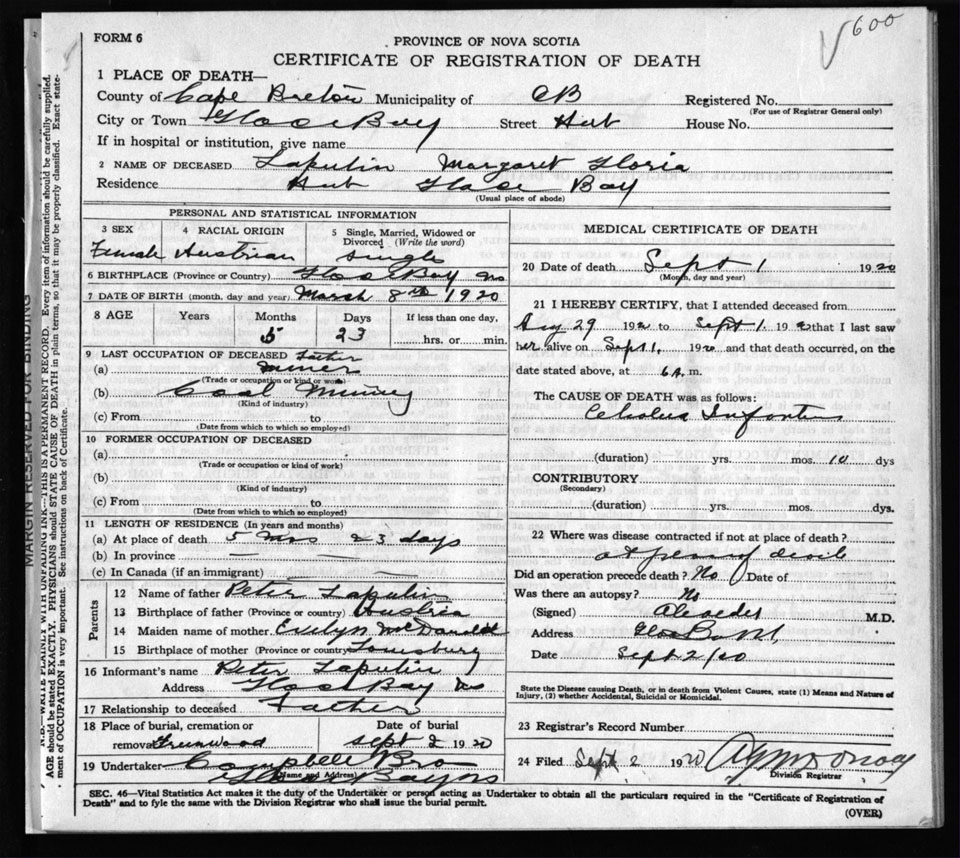 600
FORM 6
PROVINCE OF NOVA SCOTIA
CERTIFICATE OF REGISTRATION OF DEATH
1 PLACE OF DEATH—
County of Cape Breton Municipality of CB Registered No.
(For use of Registrar General only)
City or Town Glace Bay Street Hub House No.
If in hospital or institution, give name
2 NAME OF DECEASED Laputin Margaret Gloria
Residence Hub Glace Bay
(Usual place of abode)
PERSONAL AND STATISTICAL INFORMATION
3 SEX 4 RACIAL ORIGIN 5 Single, Married, Widowed or Divorced (Write the word)
Female Austrian Single
6 BIRTHPLACE (Province or Country) Glace Bay NS
7 DATE OF BIRTH (month, day and year) March 8th 1920
8 AGE Years Months Days If less than one day,
5 23 hrs. or min.
9 LAST OCCUPATION OF DECEASED Father
(a) miner
(Trade or occupation or kind or work)
(b) Coal Mining
(Kind of industry)
(c) From to
(Date from which to which so employed)
10 FORMER OCCUPATION OF DECEASED
(a)
(Trade or occupation or kind of work)
(b)
(Kind of industry)
(c) From to
(Date from which to which so employed)
11 LENGTH OF RESIDENCE (In years and months)
(a) At place of death 5 mos 23 days
(b) In province — —
(c) In Canada (if an immigrant) — —
Parents
12 Name of father Peter Laputin
13 Birthplace of father (Province or country) Austria
14 Maiden name of mother Evelyn McDonald
15 Birthplace of mother (Province or country) Louisburg
16 Informant's name Peter Laputin
Address Glace Bay NS
17 Relationship to deceased Father
18 Place of burial, cremation or Date of burial
removal Greenwood Sept 2 1920
19 Undertaker Campbell Bro
(Name and Address)
Glace Bay NS
MEDICAL CERTIFICATE OF DEATH
20 Date of death Sept 1 1920
(Month, day and year)
21 I HEREBY CERTIFY, that I attended deceased from
Aug 29 1920 to Sept 1. 1920 that I last saw
her alive on Sept 1, 1920 and that death occurred, on the
date stated above, at 6 A. m.
The CAUSE OF DEATH was as follows:
Cholera Infantum
(duration) yrs. mos. 10 dys
CONTRIBUTORY
(Secondary)
(duration) yrs. mos. dys.
22 Where was disease contracted if not at place of death?
at place of death
Did an operation precede death? No Date of
Was there an autopsy? No
(Signed) M.D.
Address Glace Bay NS,
Date Sept 2/20
State the Disease causing Death, or in death from Violent Causes, state (1) Means and Nature of
Injury, (2) whether Accidental, Suicidal or Homicidal.
23 Registrar's Record Number
24 Filed Sept 2 1920
Division Registrar
SEC. 46—Vital Statistics Act makes it the duty of the Undertaker or person acting as Undertaker to obtain all the particulars required in the "Certificate of Registration of
Death" and to fyle the same with the Division Registrar who shall issue the burial permit.
(OVER)
MARGIN RESERVED FOR BINDING
N.B.—WRITE PLAINLY WITH UNFADING INK—THIS IS A PERMANENT RECORD. Every item of information should be carefully supplied.
AGE should be stated EXACTLY. PHYSICIANS should STATE CAUSE OF DEATH in plain terms, so that it may be properly classified. Exact state-
ment of OCCUPATION is very important. See instructions on back of Certificate.